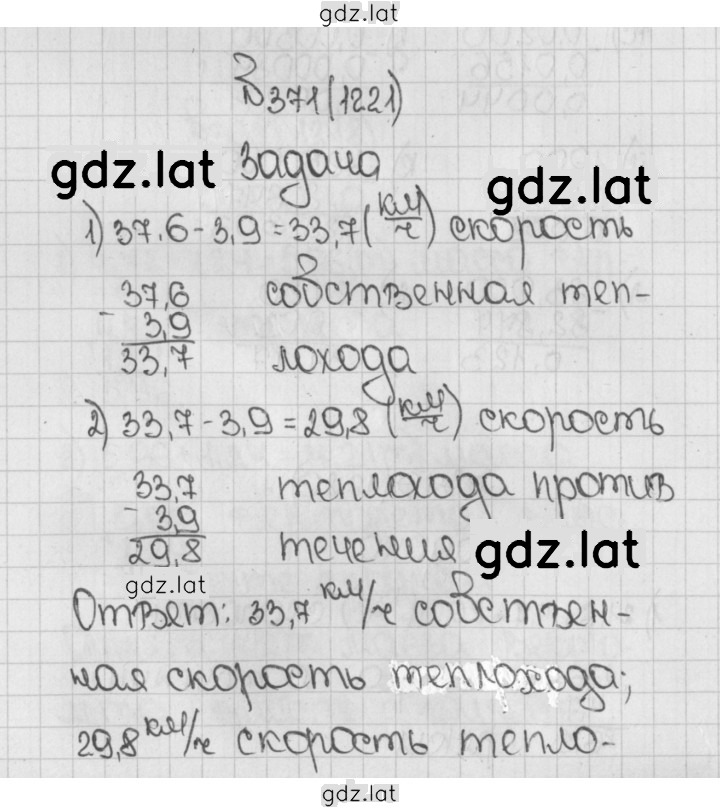 gdz.lat
№371(1221)
gdz.lat Задача gdz.lat
1) 37,6-3,9=33,7(км/ч) скорость
37,6 собственная теп-
- 3,9
33,7 лохода
2) 33,7-3,9=29,8(км/ч) скорость
33,7 теплохода против
- 3,9
29,8 течения gdz.lat
gdz.lat
Ответ: 33,7 км/ч собствен-
ная скорость теплохода;
29,8 км/ч скорость тепло-
gdz.lat